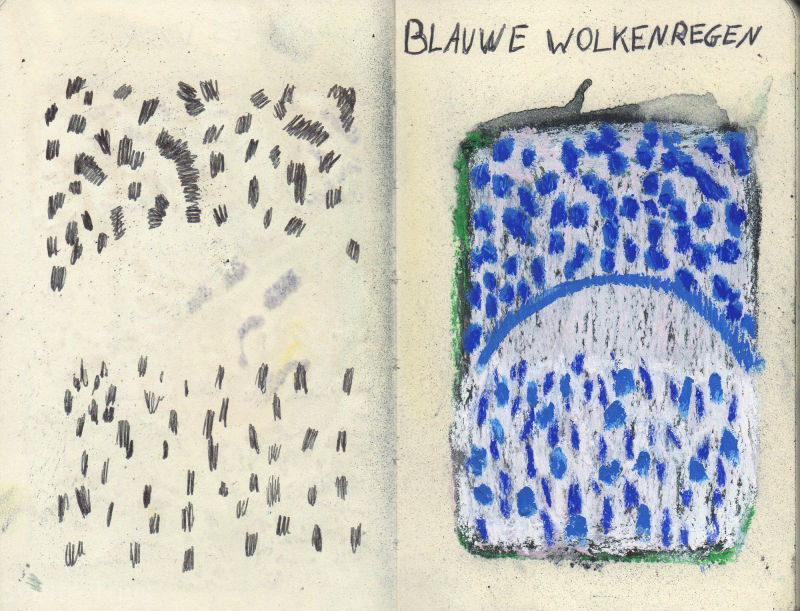 BLAUWE WOLKENREGEN